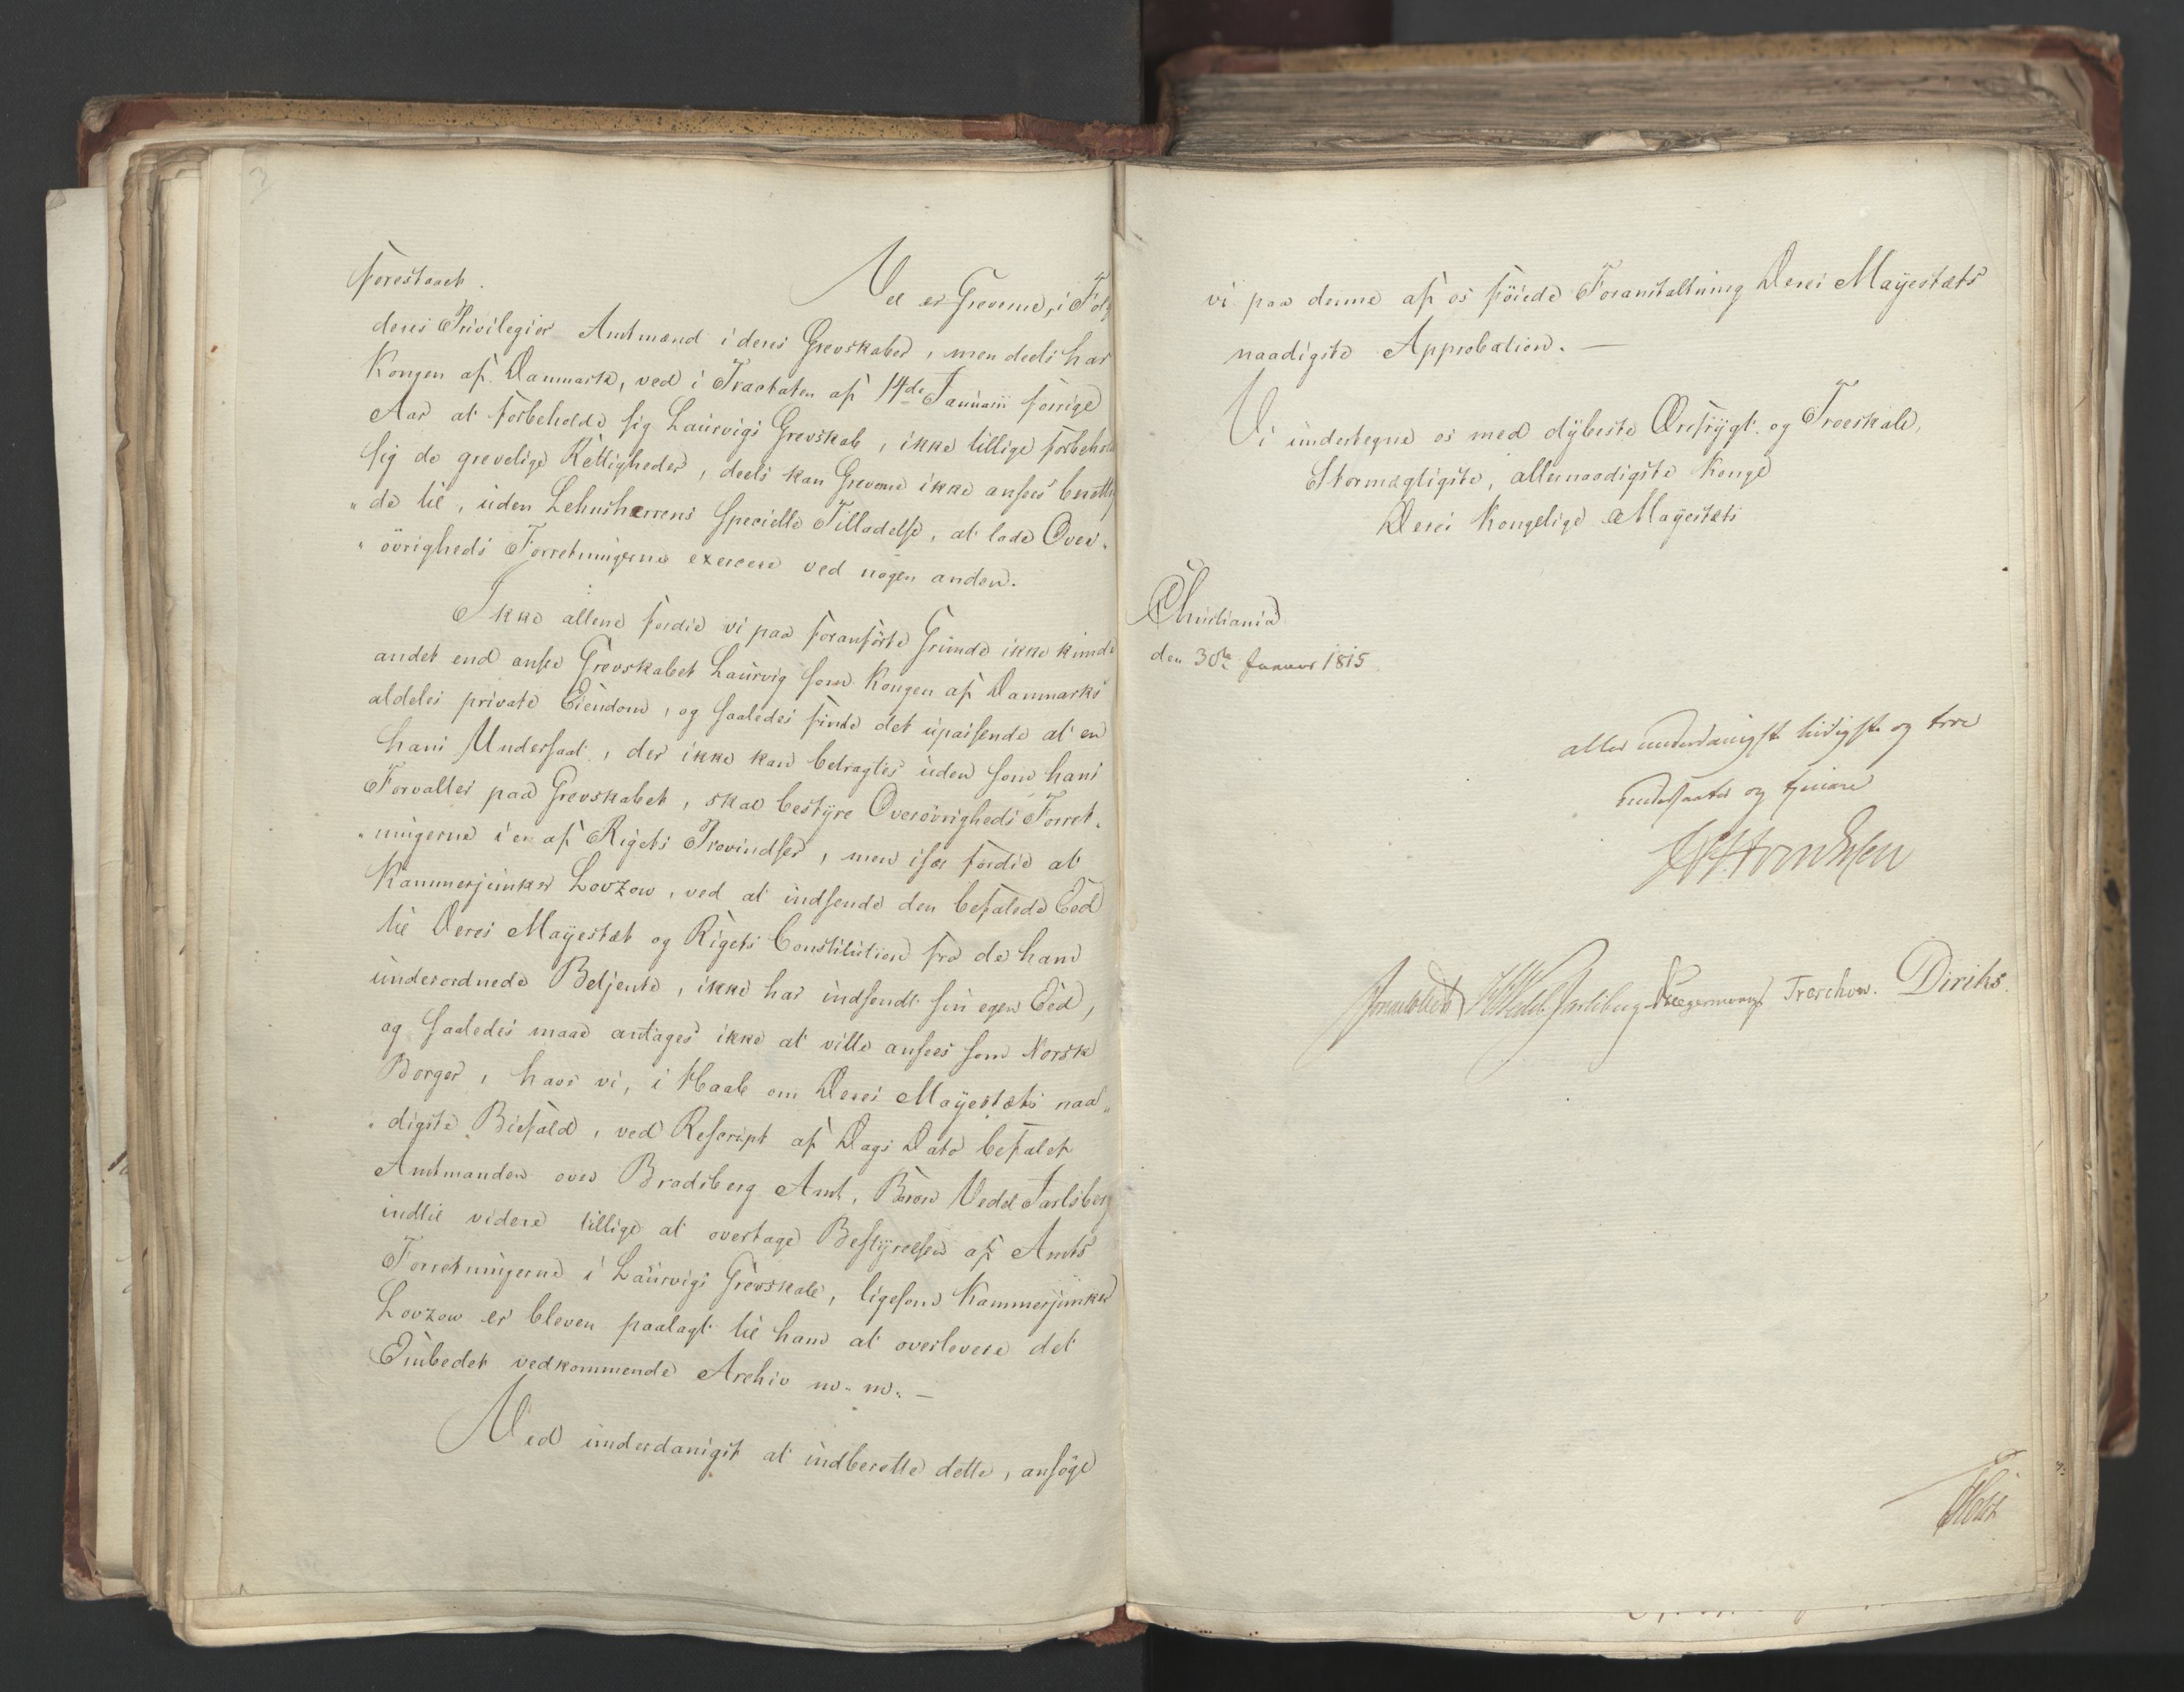 forestaaet.
Vel er Greverne, i Følg
deres Privilegier Amtmænd i deres Grevskaber, men deels har
Kongen af Danmark, ved i Tractaten af 14de Januarii forrige
Aar at forbeholde sig Laurvigs Grevskab, ikke tillige forbehold
sig de grevelige Rettigheder, deels kan Greverne ikke ansees beretti
"de til, uden Lehnsherrens specielle Tilladelse, at lade Over„
"övrigheds Forretningerne exercere ved nogen anden.
Ikke allene fordie vi paa foranførte Grunde ikke kunde
andet end ansee Grevskabet Laurvig som Kongen af Danmarks
aldeles private Eiendom, og saaledes finde det upassende at en
hans Undersaat, der ikke kan betragtes uden som hans
Forvalter paa Grevskabet, skal bestyre Overövrigheds Forret„
"ningerne i en af Rigets Provindser, men især fordie at
Kammerjunker Lovzow, ved at indsende den befalede Eed
til Deres Majestæt og Rigets Constitution fra de ham
underordnede Betjente, ikke har indsendt sin egen Eed,
og saaledes maae antages ikke at ville ansees som Norsk
Borger, have vi, i Haab om Deres Majestæts naa„
"digste Bifald, ved Rescript af Dags Dato befalet
Amtmanden over Bradsberg Amt, Baron Vedel Jarlsberg
indtil videre tillige at overtage Bestyrelsen af Amts
Forretningerne i Laurvigs Grevskab, ligesom Kammerjunker
Lovzow er bleven paalagt til ham at overlevere det
Embedet vedkommende Archiv m. m. —
Ved underdanigst at indberette dette, ansøge
vi paa denne af os föiede Foranstaltning Deres Majestæts
naadigste Approbation. —
Vi undertegne os med dybeste Ærefrygt og Troeskab,
Stormægtigste, allernaadigste Konge
Deres Kongelige Majestæts
Christiania
den 30te Januar 1815.
allerunderdanigste lydigste og troe
undersaatter og tjenere
Sommerhielm HWedel Jarlsberg Krieger Treschow. Diriks.
Holst